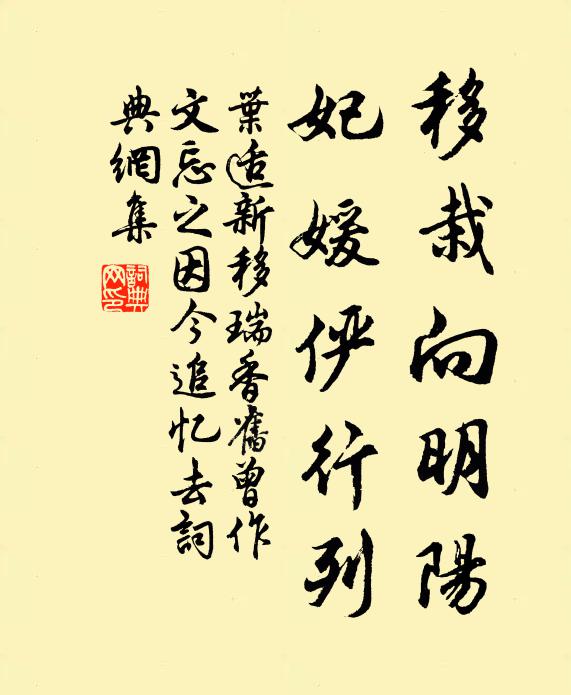 移栽向明陽
妃媛俨行列
葉适新移瑞香舊曾作
文忘之因今追忆去詞
典網集
詞典網印